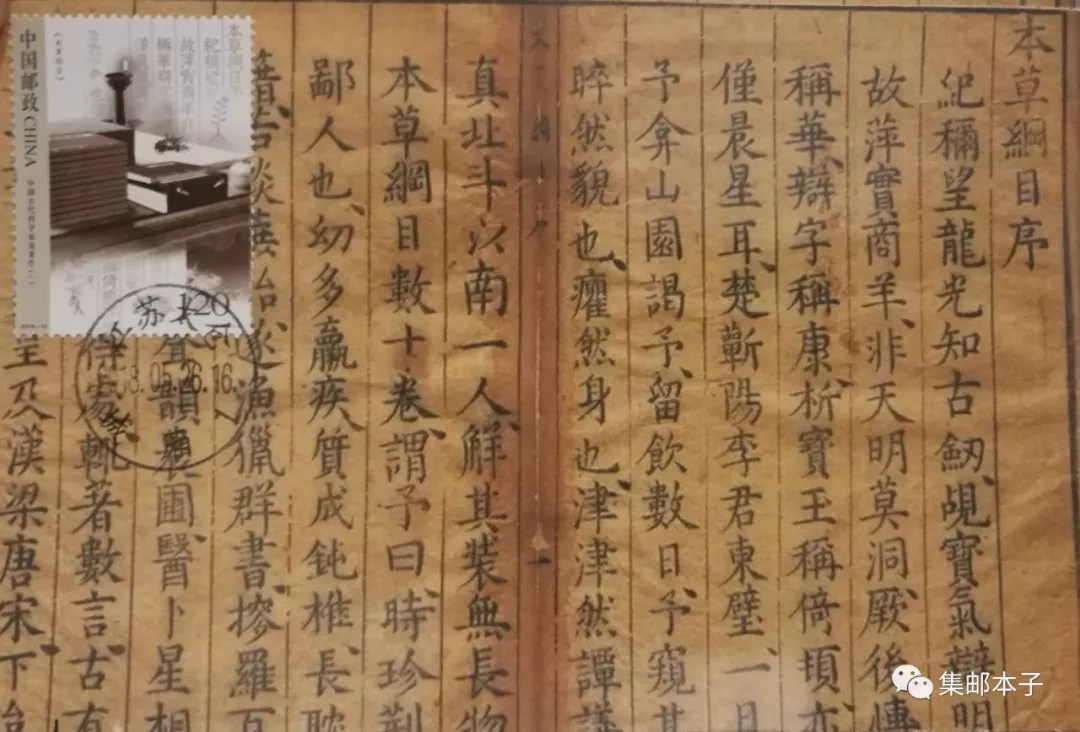 本草綱目序
紀稱望龍光知古劒、覘寶氣辯明
故萍實商羊、非天明莫洞、厥後博
稱華、辯字稱康、析寶玉稱倚頓、亦
僅晨星耳、楚蘄陽李君東璧、一日
予弇山園謁予、留飲數日、予窺其
睟然貌也、癯然身也、津津然譚議
真北斗以南一人、解其裝無長物
本草綱目數十卷、謂予曰、時珍荊
鄙人也、幼多羸疾、質成鈍椎、長耽
若啖蔗飴、遂漁獵群書、搜羅百
聲韻農圃、醫卜星相
佳處、輒著數言、古有
至及漢梁唐宋、下迨
中国邮政 CHINA
中国古代科学家及著作(一)
20
苏
08.05.26.16
集邮本子